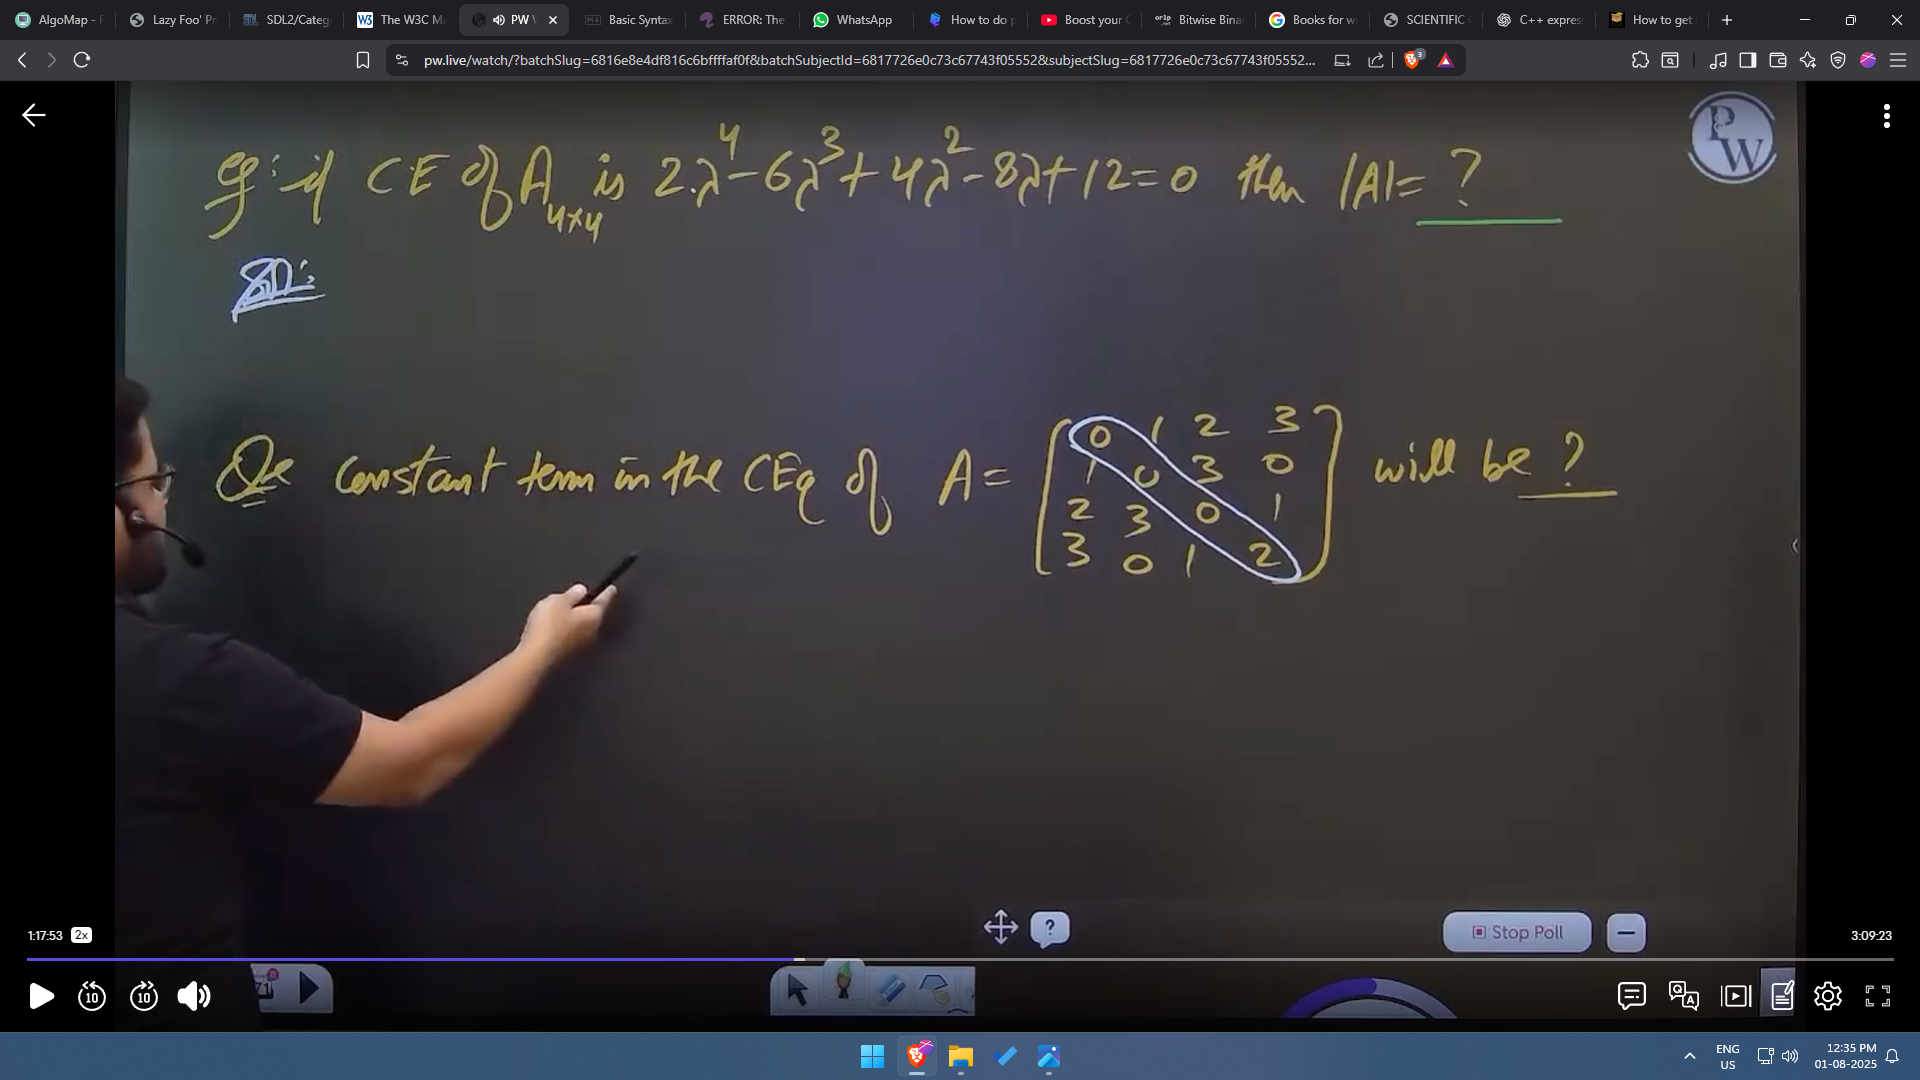 AlgoMap - F
Lazy Foo' Pr
SDL2/Categ
The W3C Ma
PW \
Basic Syntax
ERROR: The
WhatsApp
How to do p
Boost your C
Bitwise Bina
Books for wi
SCIENTIFIC
C++ expres
How to get
pw.live/watch/?batchSlug=6816e8e4df816c6bffffaf0f&batchSubjectId=6817726e0c73c67743f05552&subjectSlug=6817726e0c73c67743f05552...
3
PW
eg: if CE of A4×4 is 2λ⁴-6λ³+4λ²-8λ+12=0 then |A|= ?
SOL:
Qe constant term in the CEq of A= will be ?
0 1 2 3
1 0 3 0
2 3 0 1
3 0 1 2
?
Stop Poll
1:17:53 2x
3:09:23
10 10
71
Q A
ENG
US
12:35 PM
01-08-2025